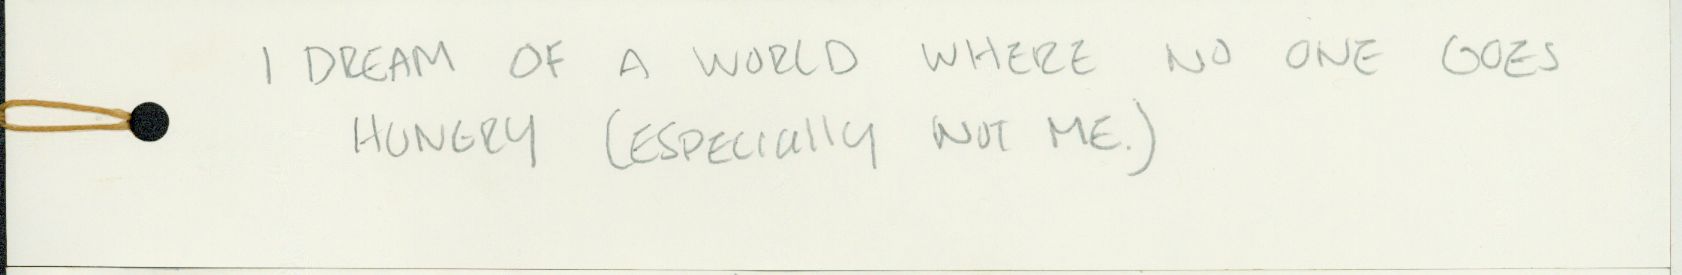 I DREAM OF A WORLD WHERE NO ONE GOES
HUNGRY (ESPECIALLY NOT ME.)